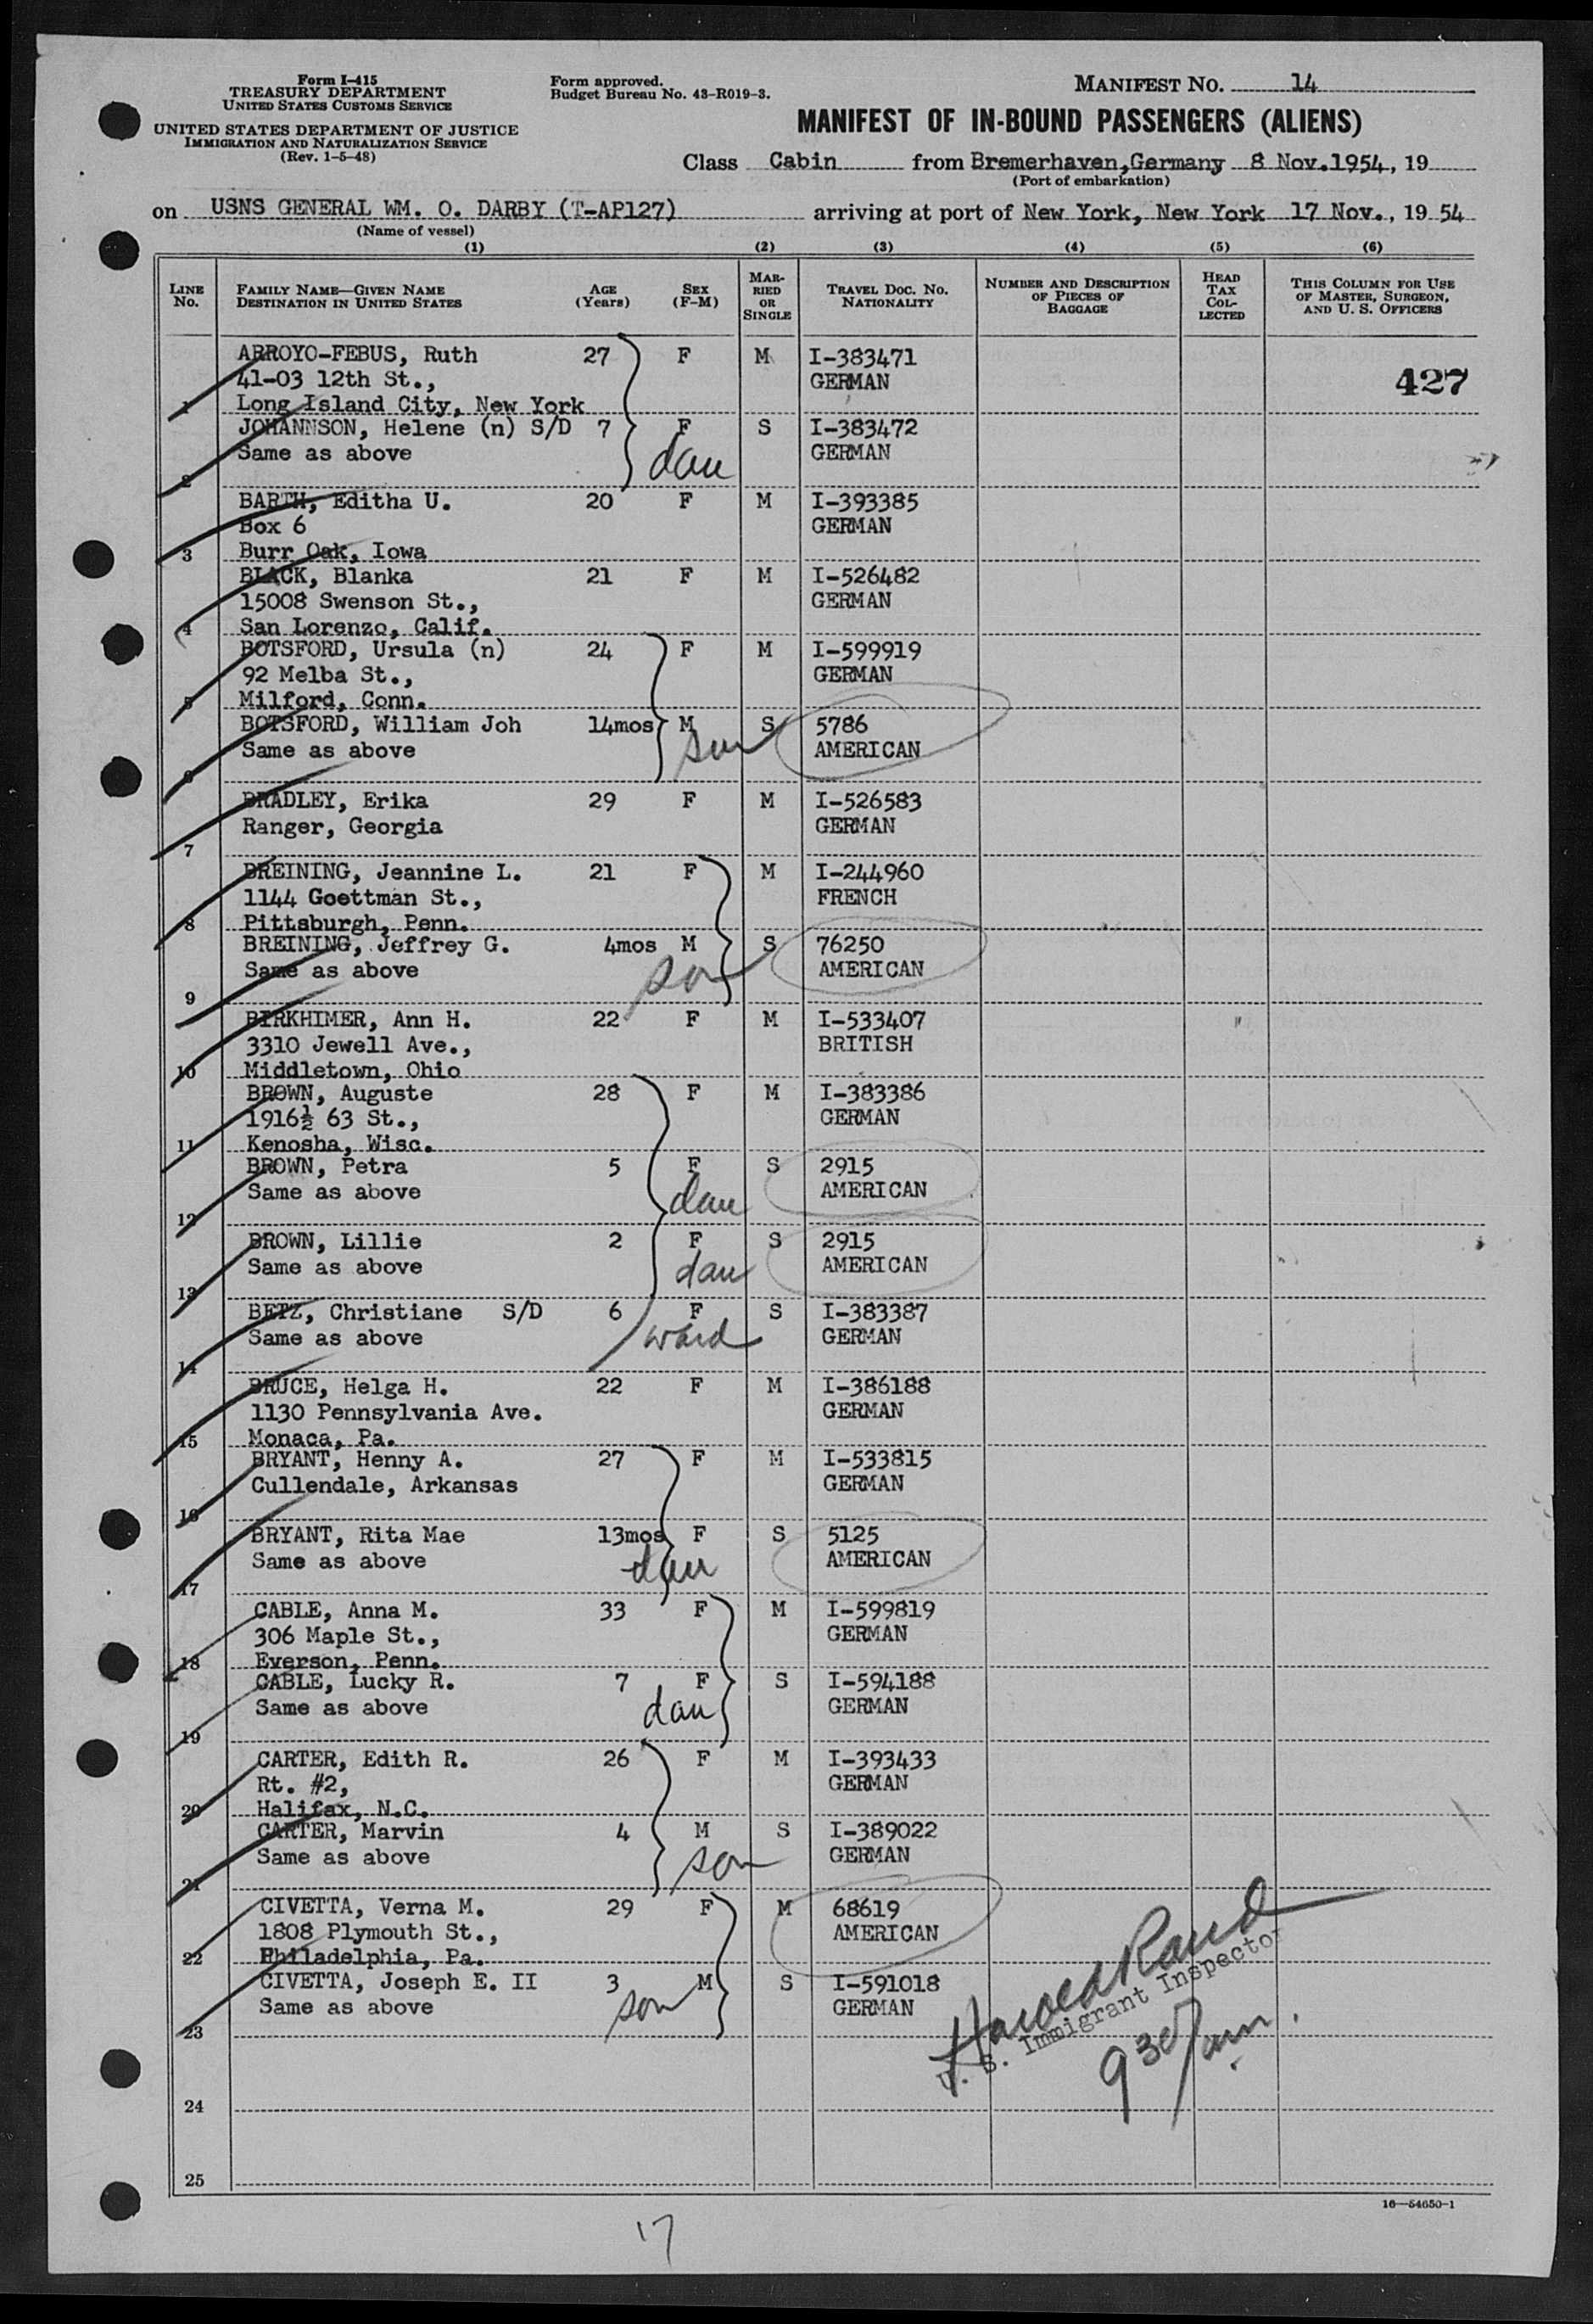 Form I-415
TREASURY DEPARTMENT
UNITED STATES CUSTOMS SERVICE
UNITED STATES DEPARTMENT OF JUSTICE
IMMIGRATION AND NATURALIZATION SERVICE
(Rev. 1-5-48)
Form approved.
Budget Bureau No. 43-R019-3.
MANIFEST NO. 14
MANIFEST OF IN-BOUND PASSENGERS (ALIENS)
Class Cabin from Bremerhaven, Germany 8 Nov. 1954, 19
(Port of embarkation)
on USNS GENERAL WM. O. DARBY (T-AP127) arriving at port of New York, New York 17 Nov., 19 54
(Name of vessel)
(1) (2) (3) (4) (5) (6)
LINE No. FAMILY NAME—GIVEN NAME DESTINATION IN UNITED STATES AGE (Years) SEX (F-M) MARRIED OR SINGLE TRAVEL DOC. NO. NATIONALITY NUMBER AND DESCRIPTION OF PIECES OF BAGGAGE HEAD TAX COLLECTED THIS COLUMN FOR USE OF MASTER, SURGEON, AND U. S. OFFICERS
ARROYO-FEBUS, Ruth 27 F M I-383471
41-03 12th St., GERMAN 427
1 Long Island City, New York
JOHANNSON, Helene (n) S/D 7 F S I-383472
Same as above dau GERMAN
2
BARTH, Editha U. 20 F M I-393385
Box 6 GERMAN
3 Burr Oak, Iowa
BLACK, Blanka 21 F M I-526482
15008 Swenson St., GERMAN
4 San Lorenzo, Calif.
BOTSFORD, Ursula (n) 24 F M I-599919
92 Melba St., GERMAN
5 Milford, Conn.
BOTSFORD, William Joh 14mos M S 5786
Same as above son AMERICAN
6
BRADLEY, Erika 29 F M I-526583
Ranger, Georgia GERMAN
7
BREINING, Jeannine L. 21 F M I-244960
1144 Goettman St., FRENCH
8 Pittsburgh, Penn.
BREINING, Jeffrey G. 4mos M S 76250
Same as above son AMERICAN
9
BIRKHIMER, Ann H. 22 F M I-533407
3310 Jewell Ave., BRITISH
10 Middletown, Ohio
BROWN, Auguste 28 F M I-383386
1916½ 63 St., GERMAN
11 Kenosha, Wisc.
BROWN, Petra 5 F S 2915
Same as above dau AMERICAN
12
BROWN, Lillie 2 F S 2915
Same as above dau AMERICAN
13
BETZ, Christiane S/D 6 F S I-383387
Same as above ward GERMAN
14
BRUCE, Helga H. 22 F M I-386188
1130 Pennsylvania Ave. GERMAN
15 Monaca, Pa.
BRYANT, Henny A. 27 F M I-533815
Cullendale, Arkansas GERMAN
16
BRYANT, Rita Mae 13mos F S 5125
Same as above dau AMERICAN
17
CABLE, Anna M. 33 F M I-599819
306 Maple St., GERMAN
18 Everson, Penn.
CABLE, Lucky R. 7 F S I-594188
Same as above dau GERMAN
19
CARTER, Edith R. 26 F M I-393433
Rt. #2, GERMAN
20 Halifax, N.C.
CARTER, Marvin 4 M S I-389022
Same as above son GERMAN
21
CIVETTA, Verna M. 29 F M 68619
1808 Plymouth St., AMERICAN
22 Philadelphia, Pa.
CIVETTA, Joseph E. II 3 M S I-591018
Same as above son GERMAN
23
Harold Rand
U. S. Immigrant Inspector
930 am.
24
25
16—54650-1
17